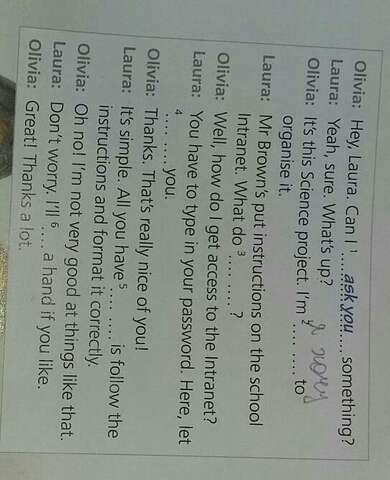 Olivia: Hey, Laura. Can I ¹ .... ask you .... something?
Laura: Yeah, sure. What's up?
Olivia: It's this Science project. I'm ² .... .... to
organise it.
Laura: Mr Brown's put instructions on the school
Intranet. What do ³ .... .... ?
Olivia: Well, how do I get access to the Intranet?
Laura: You have to type in your password. Here, let
⁴ .... .... you.
Olivia: Thanks. That's really nice of you!
Laura: It's simple. All you have ⁵ .... .... is follow the
instructions and format it correctly.
Olivia: Oh no! I'm not very good at things like that.
Laura: Don't worry. I'll ⁶ .... a hand if you like.
Olivia: Great! Thanks a lot.